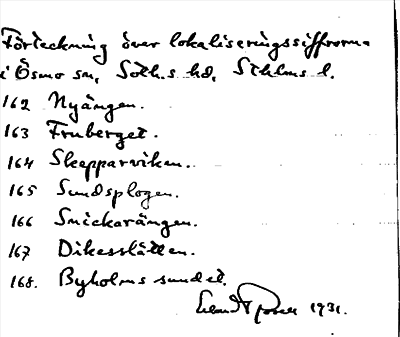 Förteckning över lokaliseringssiffrorna
i Ösmo sn, Soth.s hd, Sthlms l.
162 Nyängen.
163 Fruberget.
164 Skepparviken.
165 Sundsplogen.
166 Snickarängen.
167 Dikesslätten.
168. Byholms sundet.
1931.